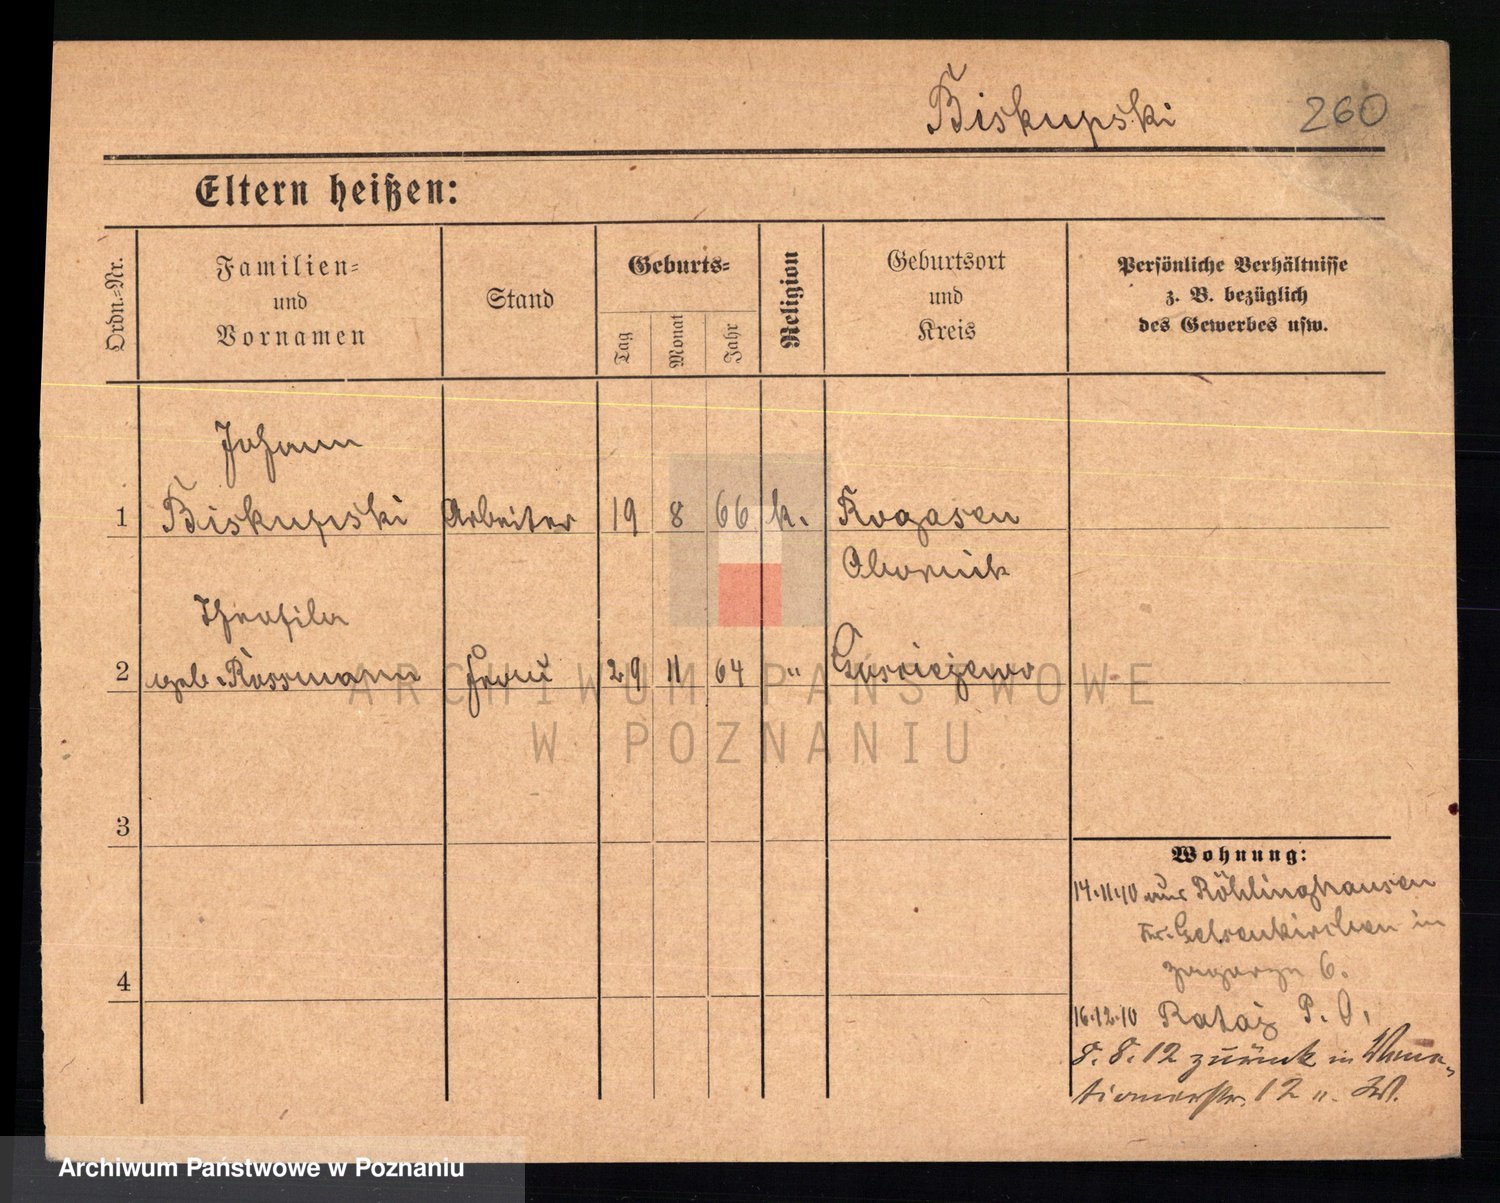 Biskupski 260
Eltern heißen:
Ordn.-Nr.
Familien-
und
Vornamen
Stand
Geburts-
Tag
Monat
Jahr
Religion
Geburtsort
und
Kreis
Persönliche Verhältnisse
z. B. bezüglich
des Gewerbes usw.
Johann
1 Biskupski Arbeiter 19 8 66 k. Rogasen
Obornik
Theofila
2 geb. Rossmann Frau 29 11 64 "
ARCHIWUM PAŃSTWOWE
W POZNANIU
3
Wohnung:
14.11.10 aus Röhlinghausen
Kr. Gelsenkirchen in
Zagorze 6.
4
16.12.10 Rataj P. O.
8. 8. 12 zurück in
12 II.
Archiwum Państwowe w Poznaniu